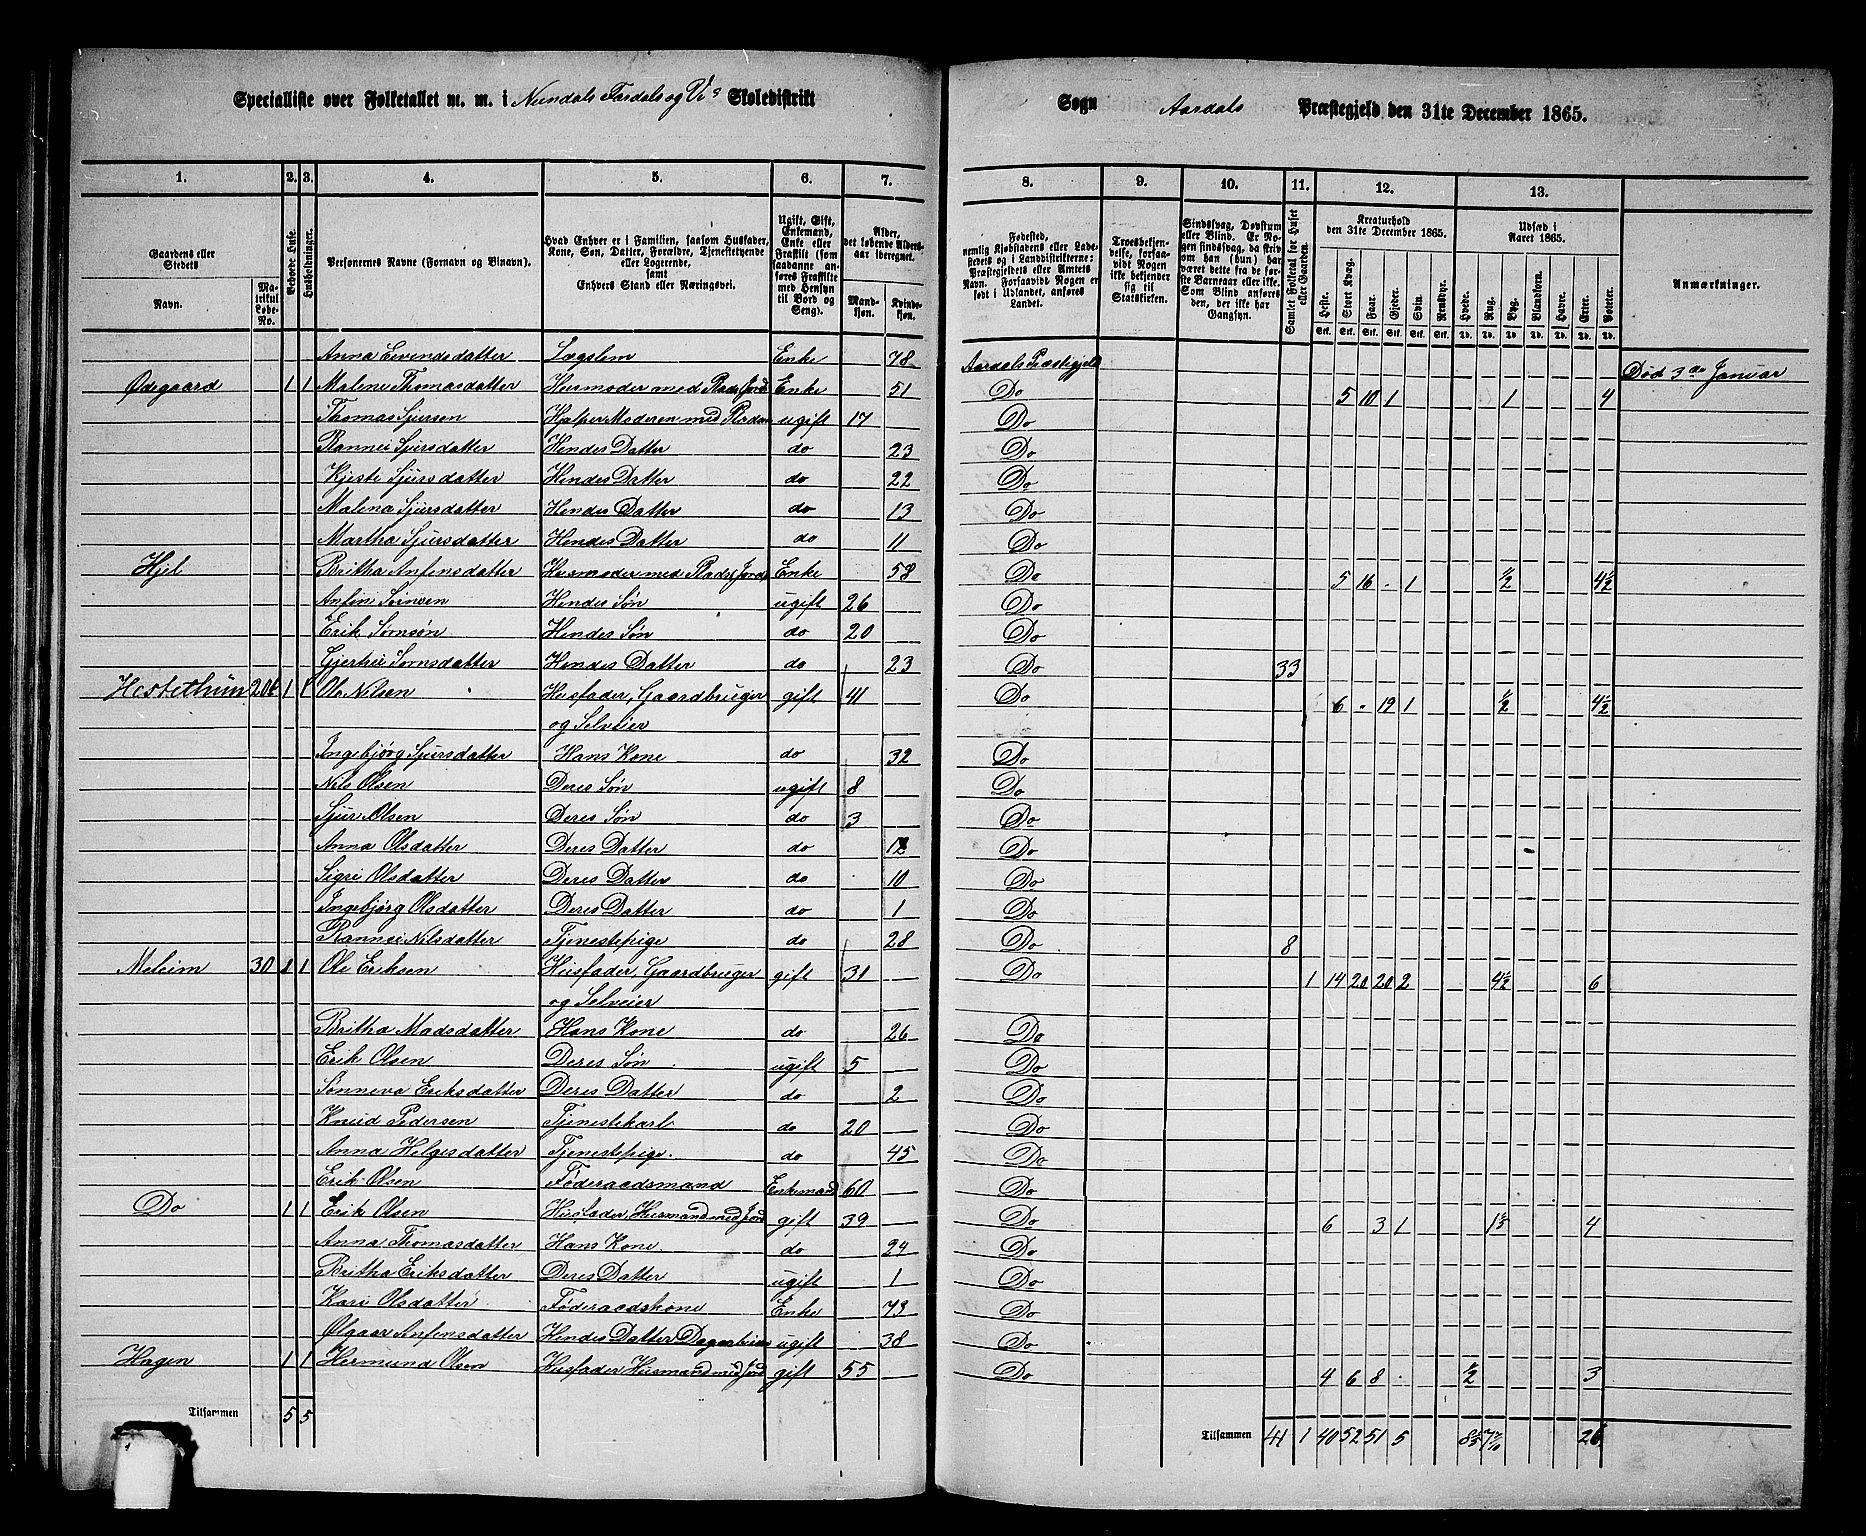 Specialliste over Folketallet m. m. i Nundals Fardals og Vis Skoledistrikt Sogn Aardals Præstegjeld den 31te December 1865.
1. 2. 3. 4. 5. 6. 7. 8. 9. 10. 11. 12. 13.
Gaardens eller Stedets
Navn.
Matrikul Løbe-No.
Beboede Huse.
Husholdninger.
Personernes Navne (Fornavn og Binavn).
Hvad Enhver er i Familien, saasom Husfader, Kone, Søn, Datter, Forældre, Tjenestetyende eller Logerende, samt Enhvers Stand eller Næringsvei.
Ugift, Gift, Enkemand, Enke eller Fraskilt (som saadanne anføres Fraskilte med Hensyn til Bord og Seng).
Alder, det løbende Alders-aar iberegnet.
Mandkjøn.
Kvindekjøn.
Fødested, nemlig Kjøbstadens eller Ladestedets og i Landdistrikterne: Præstegjeldets eller Amtets Navn. Forsaavidt Nogen er født i Udlandet, anføres Landet.
Troesbekjendelse, forsaavidt Nogen ikke bekjender sig til Statskirken.
Sindssvag, Døvstum eller Blind. Er Nogen sindssvag, da skrives om han (hun) har været dette fra de første Barneaar eller ikke. Som Blind anføres de, der ikke har Gangsyn.
Samlet Folketal for Huset eller Gaarden.
Kreaturhold den 31te December 1865.
Heste. Stort Kvæg. Faar. Gjeder. Svin. Rensdyr.
Udsæd i Aaret 1865.
Hvede. Rug. Byg. Blandkorn. Havre. Erter. Poteter.
Anmærkninger.
Anna Eivendsdatter Lægslem Enke 78 Aardals Præstegjeld Død 3de Januar
Ødegaard 1 1 Malene Thomasdatter Husmoder med Plads Jord Enke 51 Do 5 10 1 1 4
Thomas Sjursen Hjelper Moderen med Pladsen ugift 17 Do
Rannei Sjursdatter Hendes Datter do 23 Do
Kjesti Sjursdatter Hendes Datter do 22 Do
Malena Sjursdatter Hendes Datter do 13 Do
Martha Sjursdatter Hendes Datter do 11 Do
Hjel Britha Anfensdatter Husmoder med Plads Jord Enke 58 Do 5 16 - 1 ½ 4½
Anfen Sørnsen Hendes Søn ugift 26 Do
Erik Sørnsøn Hendes Søn do 20 Do
Gjertrue Sørnsdatter Hendes Datter do 23 Do 33
Hestethun 206 1 1 Ole Nilsen Husfader, Gaardbruger gift 41 Do 6 - 19 1 ½ 4½
og Selveier
Ingebjørg Sjursdatter Hans Kone do 32 Do
Nils Olsen Deres Søn ugift 8 Do
Sjur Olsen Deres Søn do 3 Do
Anna Olsdatter Deres Datter do 12 Do
Sigri Olsdatter Deres Datter do 10 Do
Ingebjørg Olsdatter Deres Datter do 1 Do
Rannei Nilsdatter Tjenestepige do 28 Do 8
Meleim 30 1 1 Ole Eriksen Husfader, Gaardbruger gift 31 Do 1 14 20 20 2 4½ 6
og Selveier
Britha Madsdatter Hans Kone do 26 Do
Erik Olsen Deres Søn ugift 5 Do
Sønneva Eriksdatter Deres Datter do 2 Do
Knud Pedersen Tjenestekarl do 20 Do
Anna Helgesdatter Tjenestepige do 45 Do
Erik Olsen Føderaadsmand Enkemand 60 Do
Do 1 1 Erik Olsen Husfader, Husmand med Jord gift 39 Do 6 3 1 1⅓ 4
Anna Thomasdatter Hans Kone do 24 Do
Britha Eriksdatter Deres Datter ugift 1 Do
Kari Olsdatter Føderaadskone Enke 73 Do
Olgaar Anfensdatter Hendes Datter ugift 38 Do
Hagen 1 1 Hermund Olsen Husfader Husmand med Jord gift 55 Do 4 6 8 ½ 3
Tilsammen 5 5 Tilsammen 41 1 40 52 51 5 26